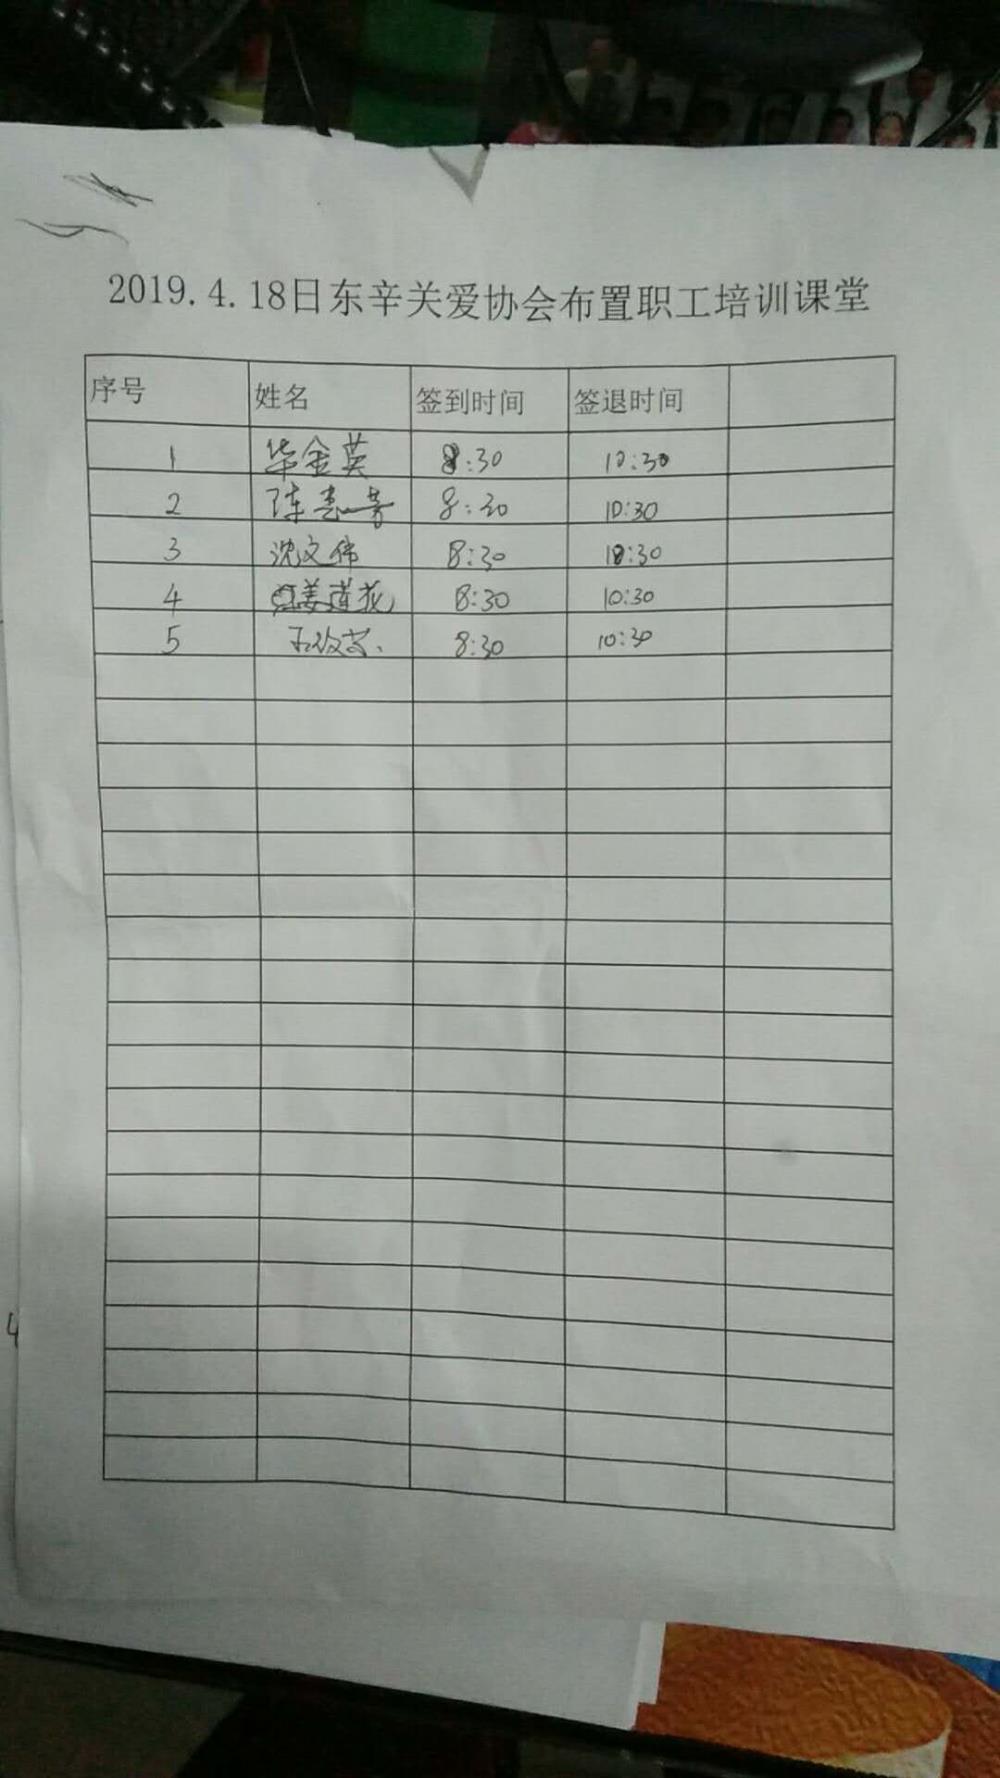 2019.4.18日东辛关爱协会布置职工培训课堂
序号 姓名 签到时间 签退时间
1 华金英 8:30 10:30
2 陈惠芳 8:30 10:30
3 沈文伟 8:30 10:30
4 姜莲花 8:30 10:30
5 8:30 10:30